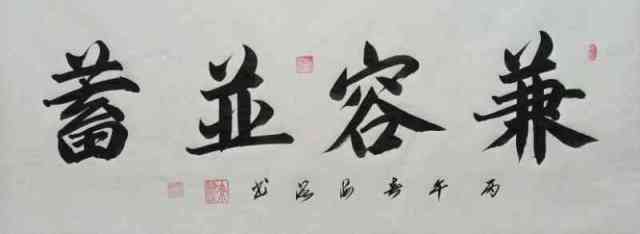 兼容並蓄
丙午春